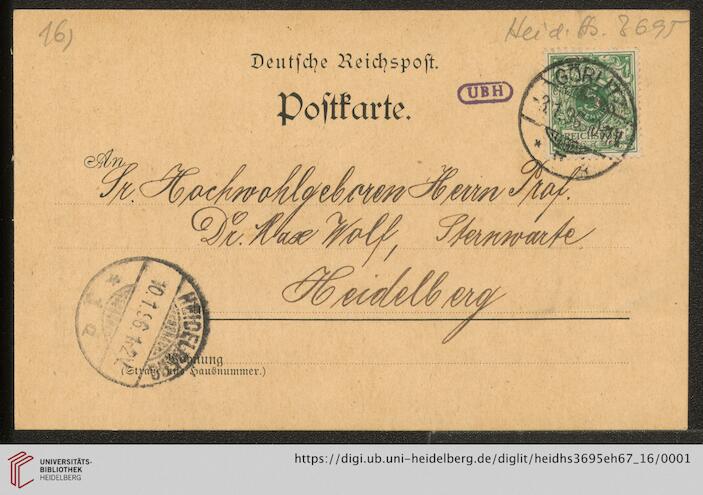 16)
Heid. Hs. 3695
Deutsche Reichspost.
UBH
Postkarte.
GÖRLITZ
An
Sr. Hochwohlgeboren Herrn Prof.
Dr. Max Wolf, Sternwarte
Heidelberg
HEIDELBERG
10.1.96.
Wohnung
(Straße und Hausnummer.)
UNIVERSITÄTS-
BIBLIOTHEK
HEIDELBERG
https://digi.ub.uni-heidelberg.de/diglit/heidhs3695eh67_16/0001